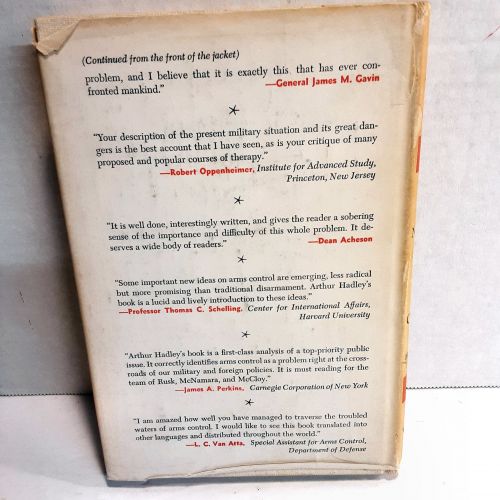 (Continued from the front of the jacket)
problem, and I believe that it is exactly this that has ever con-
fronted mankind."
—General James M. Gavin
"Your description of the present military situation and its great dan-
gers is the best account that I have seen, as is your critique of many
proposed and popular courses of therapy."
—Robert Oppenheimer, Institute for Advanced Study,
Princeton, New Jersey
"It is well done, interestingly written, and gives the reader a sobering
sense of the importance and difficulty of this whole problem. It de-
serves a wide body of readers." —Dean Acheson
"Some important new ideas on arms control are emerging, less radical
but more promising than traditional disarmament. Arthur Hadley's
book is a lucid and lively introduction to these ideas."
—Professor Thomas C. Schelling, Center for International Affairs,
Harvard University
"Arthur Hadley's book is a first-class analysis of a top-priority public
issue. It correctly identifies arms control as a problem right at the cross-
roads of our military and foreign policies. It is must reading for the
team of Rusk, McNamara, and McCloy."
—James A. Perkins, Carnegie Corporation of New York
"I am amazed how well you have managed to traverse the troubled
waters of arms control. I would like to see this book translated into
other languages and distributed throughout the world."
—L. C. Van Atta, Special Assistant for Arms Control,
Department of Defense